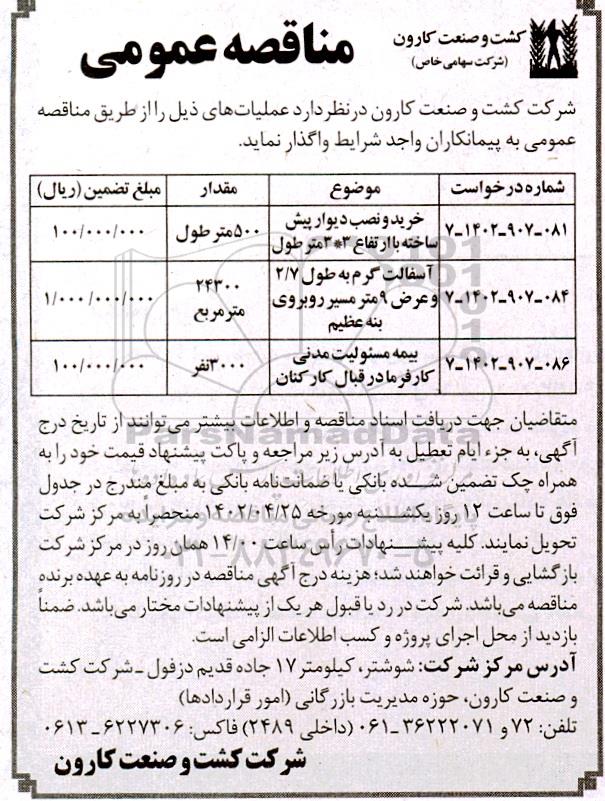 کشت و صنعت کارون
(شرکت سهامی خاص)
مناقصه عمومی
شرکت کشت و صنعت کارون در نظر دارد عملیات‌های ذیل را از طریق مناقصه
عمومی به پیمانکاران واجد شرایط واگذار نماید.
شماره درخواست موضوع مقدار مبلغ تضمین (ریال)
۷-۱۴۰۲-۹۰۷-۰۸۱ خرید و نصب دیوار پیش ساخته با ارتفاع ۳*۳ متر طول ۵۰۰ متر طول ۱۰۰/۰۰۰/۰۰۰
۷-۱۴۰۲-۹۰۷-۰۸۴ آسفالت گرم به طول ۲/۷ و عرض ۹ متر مسیر روبروی بنه عظیم ۲۴۳۰۰ متر مربع ۱/۰۰۰/۰۰۰/۰۰۰
۷-۱۴۰۲-۹۰۷-۰۸۶ بیمه مسئولیت مدنی کارفرما در قبال کارکنان ۳۰۰۰ نفر ۱۰۰/۰۰۰/۰۰۰
متقاضیان جهت دریافت اسناد مناقصه و اطلاعات بیشتر می‌توانند از تاریخ درج
آگهی، به جزء ایام تعطیل به آدرس زیر مراجعه و پاکت پیشنهاد قیمت خود را به
همراه چک تضمین شده بانکی یا ضمانت‌نامه بانکی به مبلغ مندرج در جدول
فوق تا ساعت ۱۲ روز یکشنبه مورخه ۱۴۰۲/۰۴/۲۵ منحصراً به مرکز شرکت
تحویل نمایند. کلیه پیشنهادات رأس ساعت ۱۴/۰۰ همان روز در مرکز شرکت
بازگشایی و قرائت خواهند شد؛ هزینه درج آگهی مناقصه در روزنامه به عهده برنده
مناقصه می‌باشد. شرکت در رد یا قبول هر یک از پیشنهادات مختار می‌باشد. ضمناً
بازدید از محل اجرای پروژه و کسب اطلاعات الزامی است.
آدرس مرکز شرکت: شوشتر، کیلومتر ۱۷ جاده قدیم دزفول - شرکت کشت
و صنعت کارون، حوزه مدیریت بازرگانی (امور قراردادها)
تلفن: ۷۲ و ۳۶۲۲۲۰۷۱-۰۶۱ (داخلی ۲۴۸۹) فاکس: ۶۲۲۷۳۰۶-۰۶۱۳
شرکت کشت و صنعت کارون
ParsNamadData